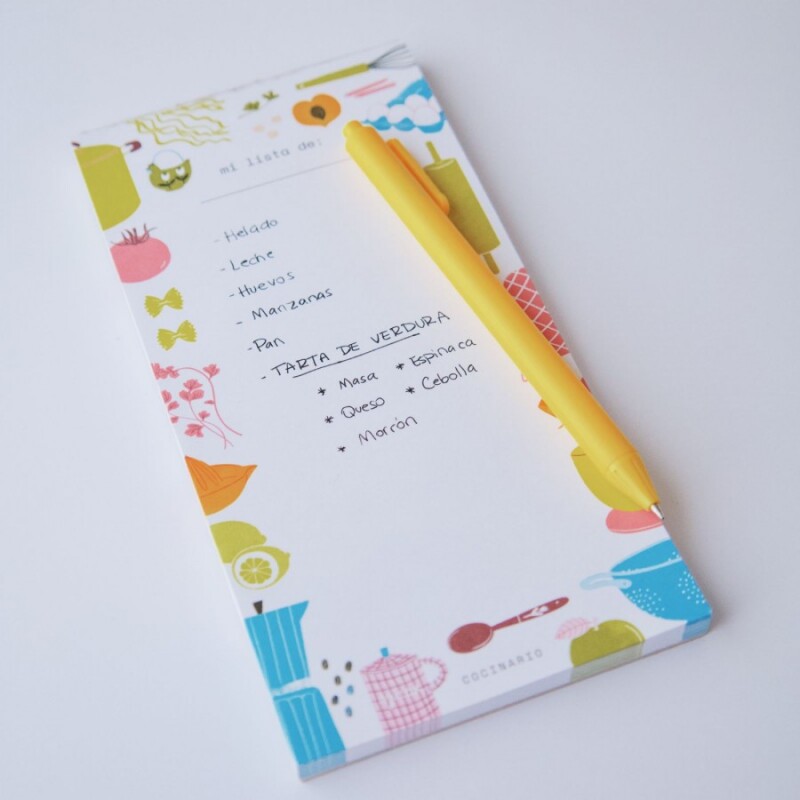 mi lista de:
- Helado
- Leche
- Huevos
- Manzanas
- Pan
- TARTA DE VERDURA
* Masa * Espinaca
* Queso * Cebolla
* Morrón
COCINARIO